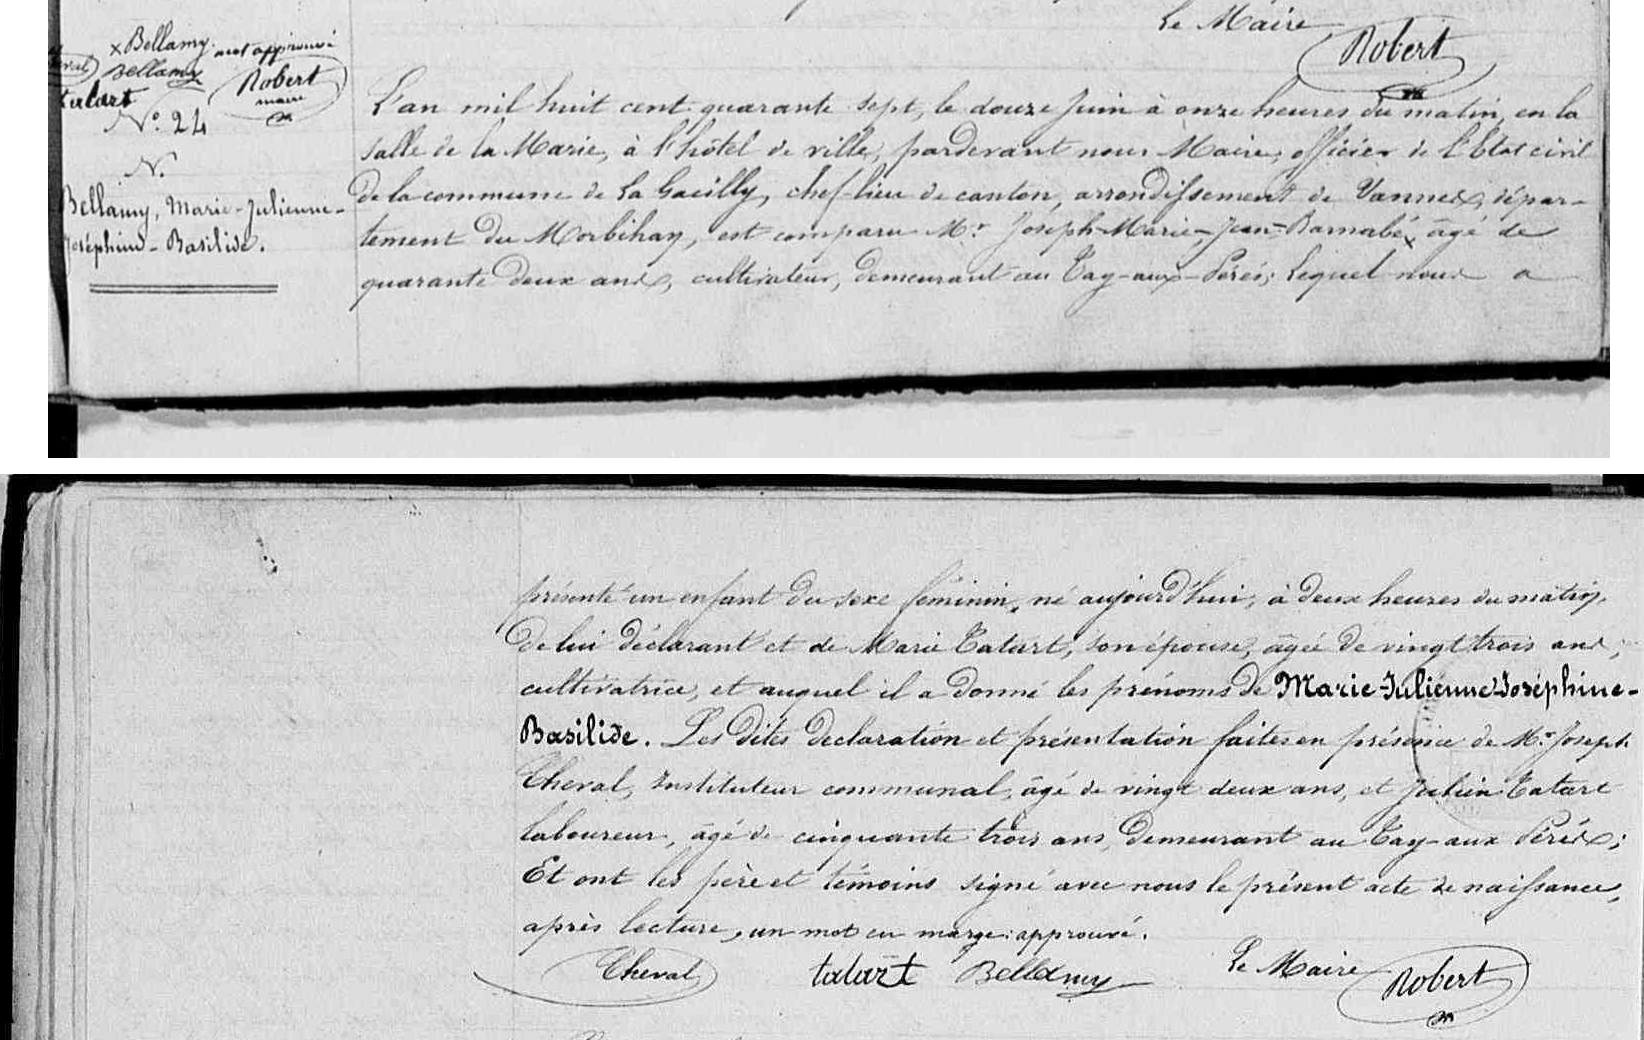 Le Maire
Robert
x Bellamy. mot approuvé
Cheval Bellamy Robert
tatart maire
N.° 24
N.
Bellamy, Marie-Julienne-
Joséphine-Basilide.
L'an mil huit cent quarante sept, le douze Juin à onze heures du matin, en la
salle de la Marie, à l'hôtel de ville, pardevant nous Maire, officier de l'Etat civil
de la commune de La Gacilly, chef-lieu de canton, arrondissement de Vannes, dépar-
tement du Morbihan, est comparu M.r Joseph-Marie-Jean-Barnabé x âgé de
quarante deux ans, cultivateur, demeurant au Tay-aux-Pérés; Lequel nous a
présenté un enfant du sexe féminin, né aujourd'hui, à deux heures du matin,
de lui déclarant et de Marie Tatart, son épouse, âgée de vingt trois ans;
cultivatrice, et auquel il a donné les prénoms de Marie-Julienne-Joséphine-
Basilide. Les dites déclaration et présentation faites en présence de M.r Joseph
Cheval, Instituteur communal, âgé de vingt deux ans, et Julien Tatart
laboureur, âgé de cinquante trois ans, demeurant au Tay-aux Pérés;
Et ont les père et témoins signé avec nous le présent acte de naissance,
après lecture, un mot en marge: approuvé.
Cheval tatart Bellamy Le Maire Robert